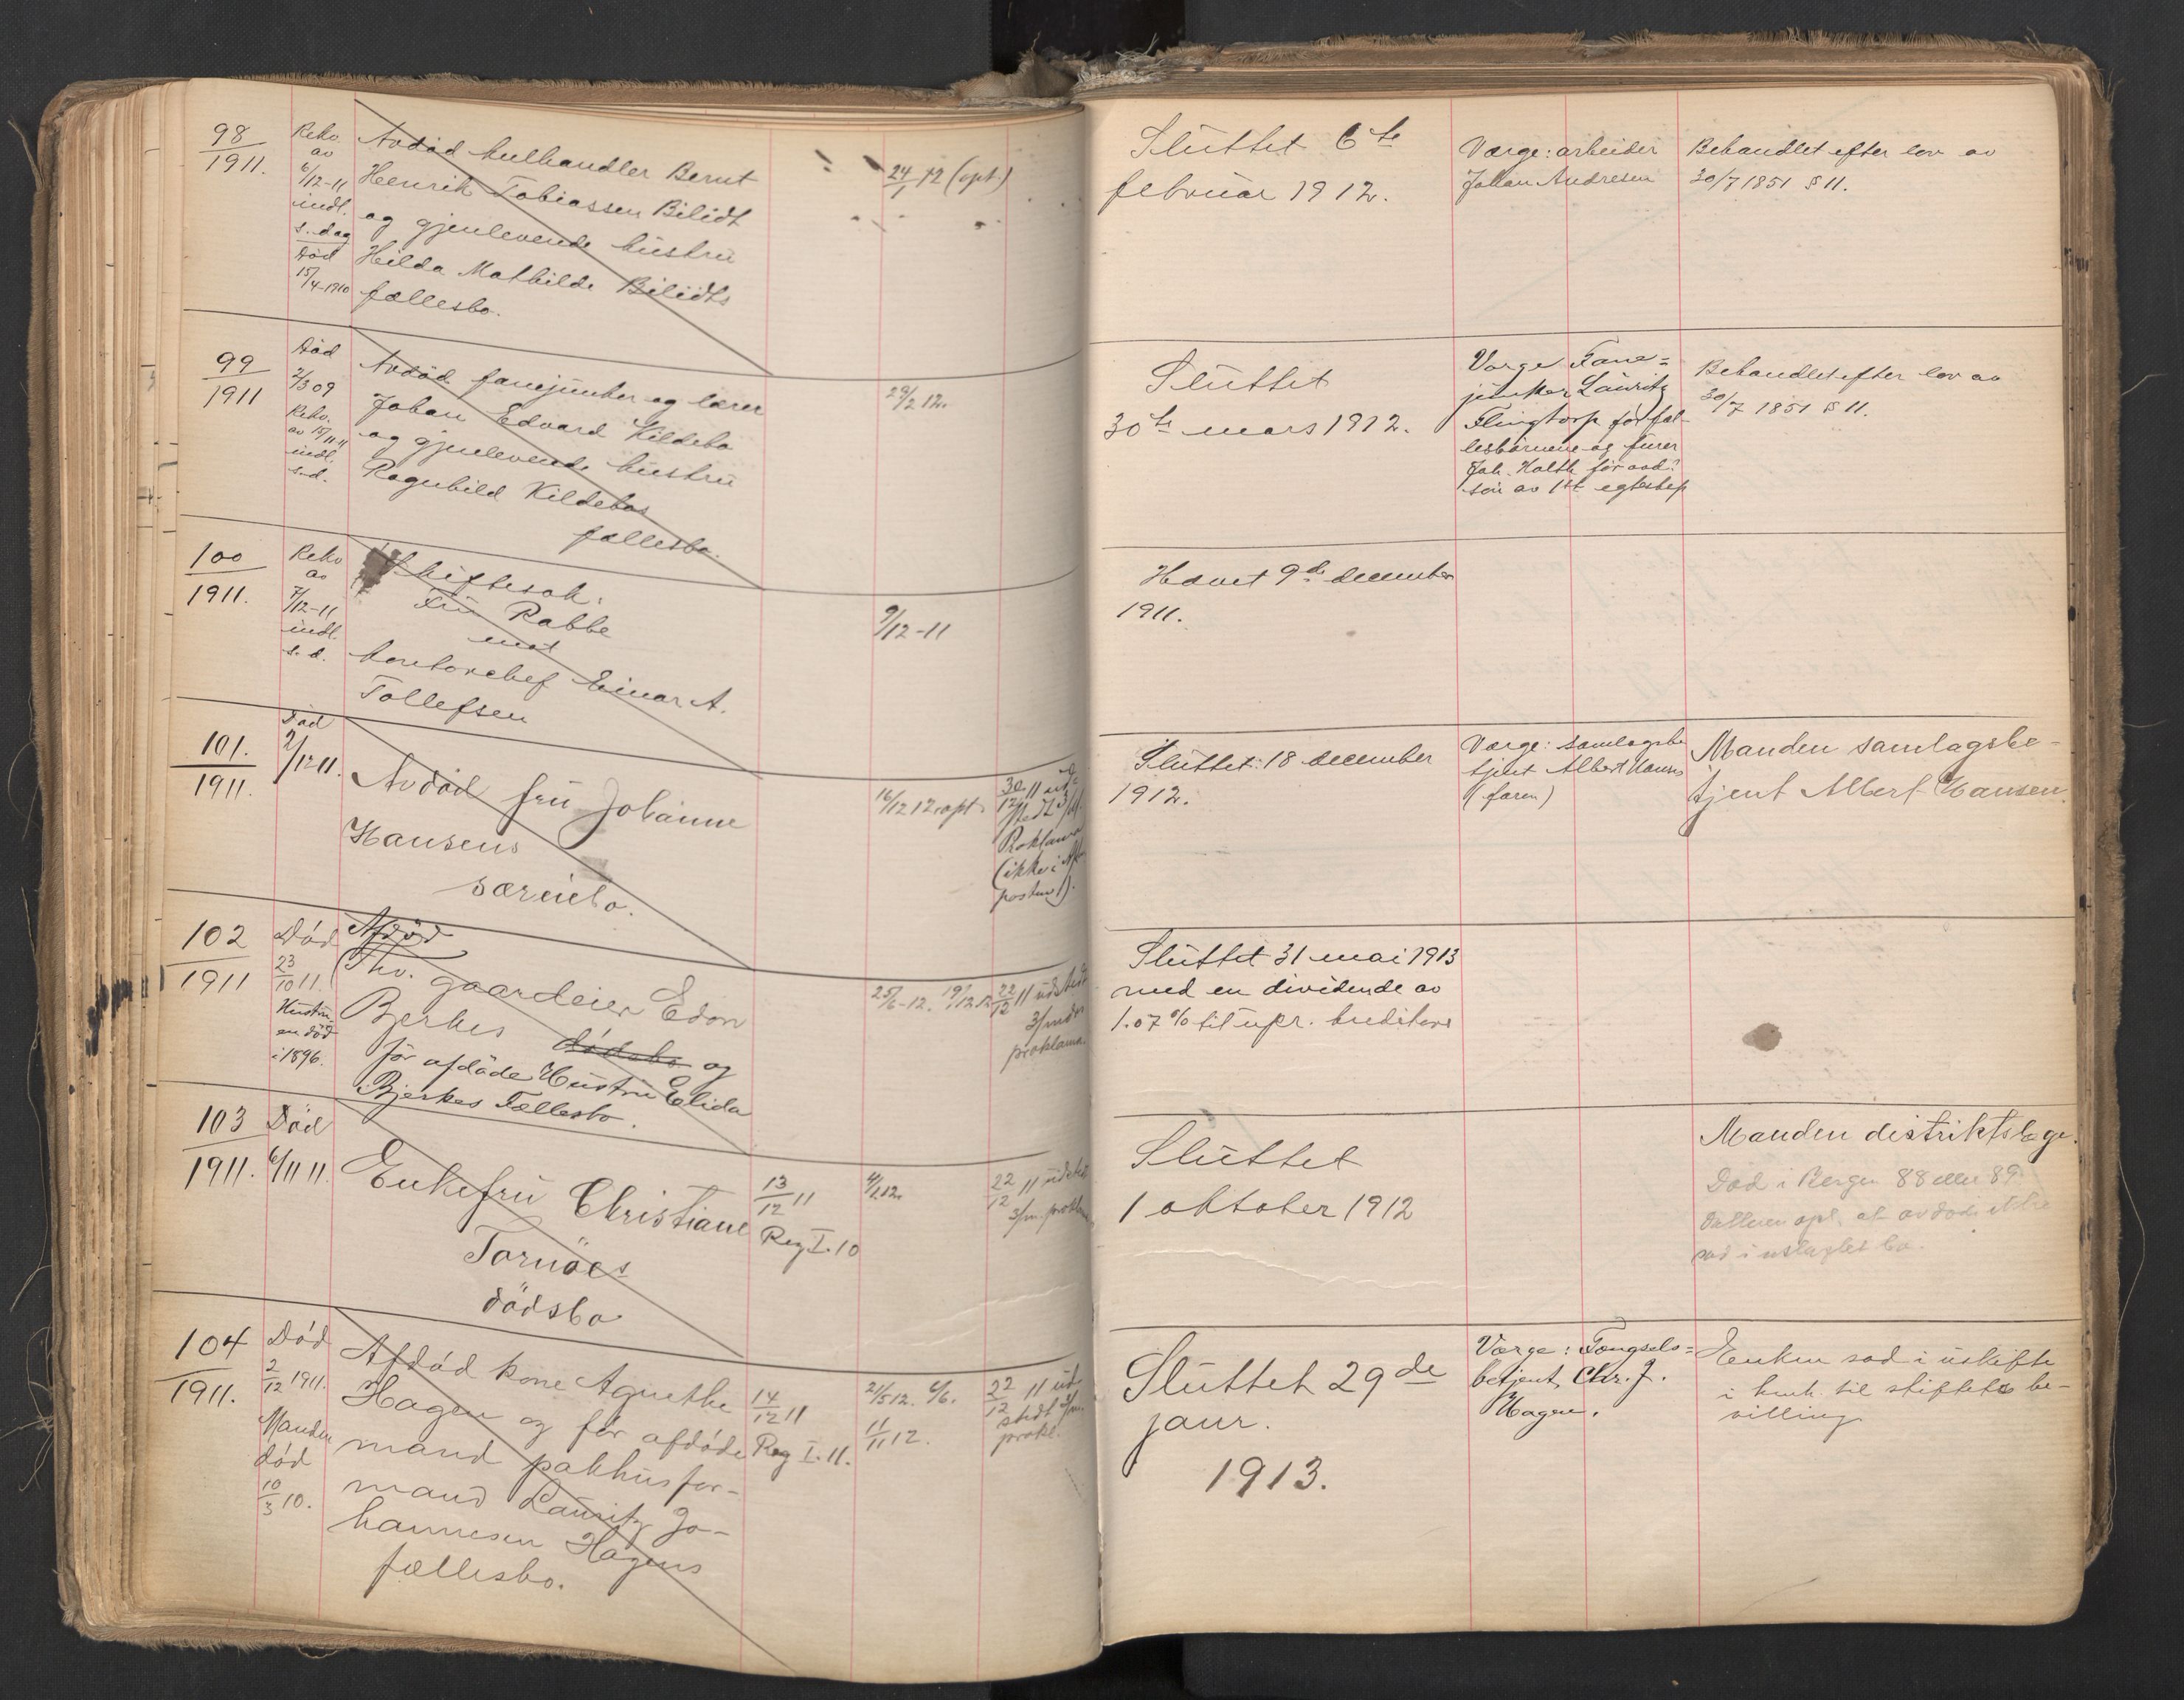 98
1911.
Rekv.
av
6/12-11
indl.
s. dag
Død
15/4-1910
Avdød kulhandler Bernt
Henrik Tobiassen Bilidt
og gjenlevende hustru
Hilda Mathilde Bilidts
fællesbo.
24/1 12 (opt)
Sluttet 6te
februar 1912.
Værge: arbeider
Johan Andresen
Behandlet efter lov av
30/7 1851 § 11.
99
1911
Død
2/3 09
Rekv.
av 15/11-11
indl.
s.d.
Avdød fanejunker og lærer
Johan Edvard Kildebo
og gjenlevende hustru
Ragnhild Kildebos
fællesbo.
29/2 12.
Sluttet
30te mars 1912.
Værge Fane=
junker Lauritz
Flingtorp for fæl-
lesbarnene og furer
Joh. Holth for avd.
søn av 1ste egteskap
Behandlet efter lov av
30/7 1851 § 11.
100
1911.
Rekv
av
7/12-11
indl.
s. d.
Skiftesak:
Fru Rabbe
mot
kontorchef Einar A.
Tollefsen
9/12-11
Hævet 9de december
1911.
101.
1911.
Død
2/12 11.
Avdød fru Johanne
Hansens
særeiebo.
16/12 12 opt.
30/12 11 ut-
stedt
Proklama
(ikke i Aften
posten!).
Sluttet: 18 december
1912.
Værge: samlagsbe
tjent Albert Hansen
(faren)
Manden samlagsbe-
tjent Albert Hansen.
102
1911
Død
23/10 11.
Hustru-
en død
i 1896.
Afdød
Thv. gaardeier Edon
Bjerkes dødsbo og
før afdøde Hustru Elida
Bjerkes Fællesbo.
25/6-12. 19/12 12
22/12 11 udstedt
3/mdrs
proklama.
Sluttet 31 mai 1913
med en dividende av
1.07 % til upr. kreditorer
103
1911.
Død
6/11 11.
Enkefru Christiane
Tornöes
dödsbo
13/12 11
Reg I. 10
22/12 11 udstedt
3/m. proklama
Sluttet
1 oktober 1912
Manden distriktslæge.
Död i Bergen 88 eller 89.
opl. at avdøde ikke
sad i uskiftet bo.
104
1911.
Død
2/12 1911.
Manden
død
10/3 10.
Afdød kone Agnethe
Hagen og før afdøde
mand pakhusfor-
mand Lauritz Jo-
hannesen Hagens
fællesbo.
14/12 11
Reg I. 11.
21/5 12. 6/6.
11/11 12.
22/12 11 ud-
stedt 3/m.
prokl.
Sluttet 29de
januar.
1913.
Værge: Fængsels=
betjent Chr. J.
Hagen.
Enken sad i uskifte
i henh. til skiftets be-
villing